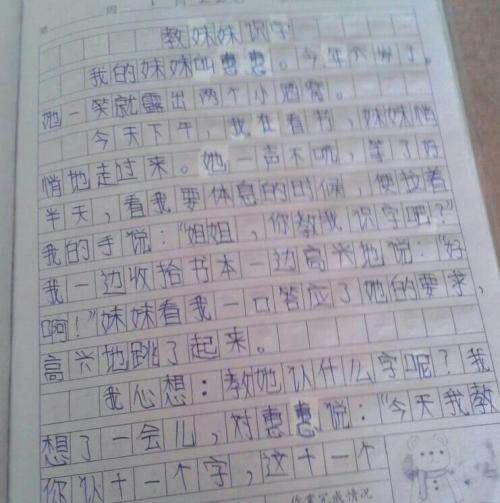 教妹妹识字
我的妹妹叫惠惠。今年六岁了。
她一笑就露出两个小酒窝。
今天下午，我在看书，妹妹悄
悄地走过来。她一声不吭，等了好
半天，看我要休息的时候，便拉着
我的手说："姐姐，你教我识字吧？"
我一边收拾书本一边高兴地说："好
啊！"妹妹看我一口答应了她的要求，
高兴地跳了起来。
我心想：教她认什么字呢？我
想了一会儿，对惠惠说："今天我教
你认十一个字，这十一个
作业完成情况